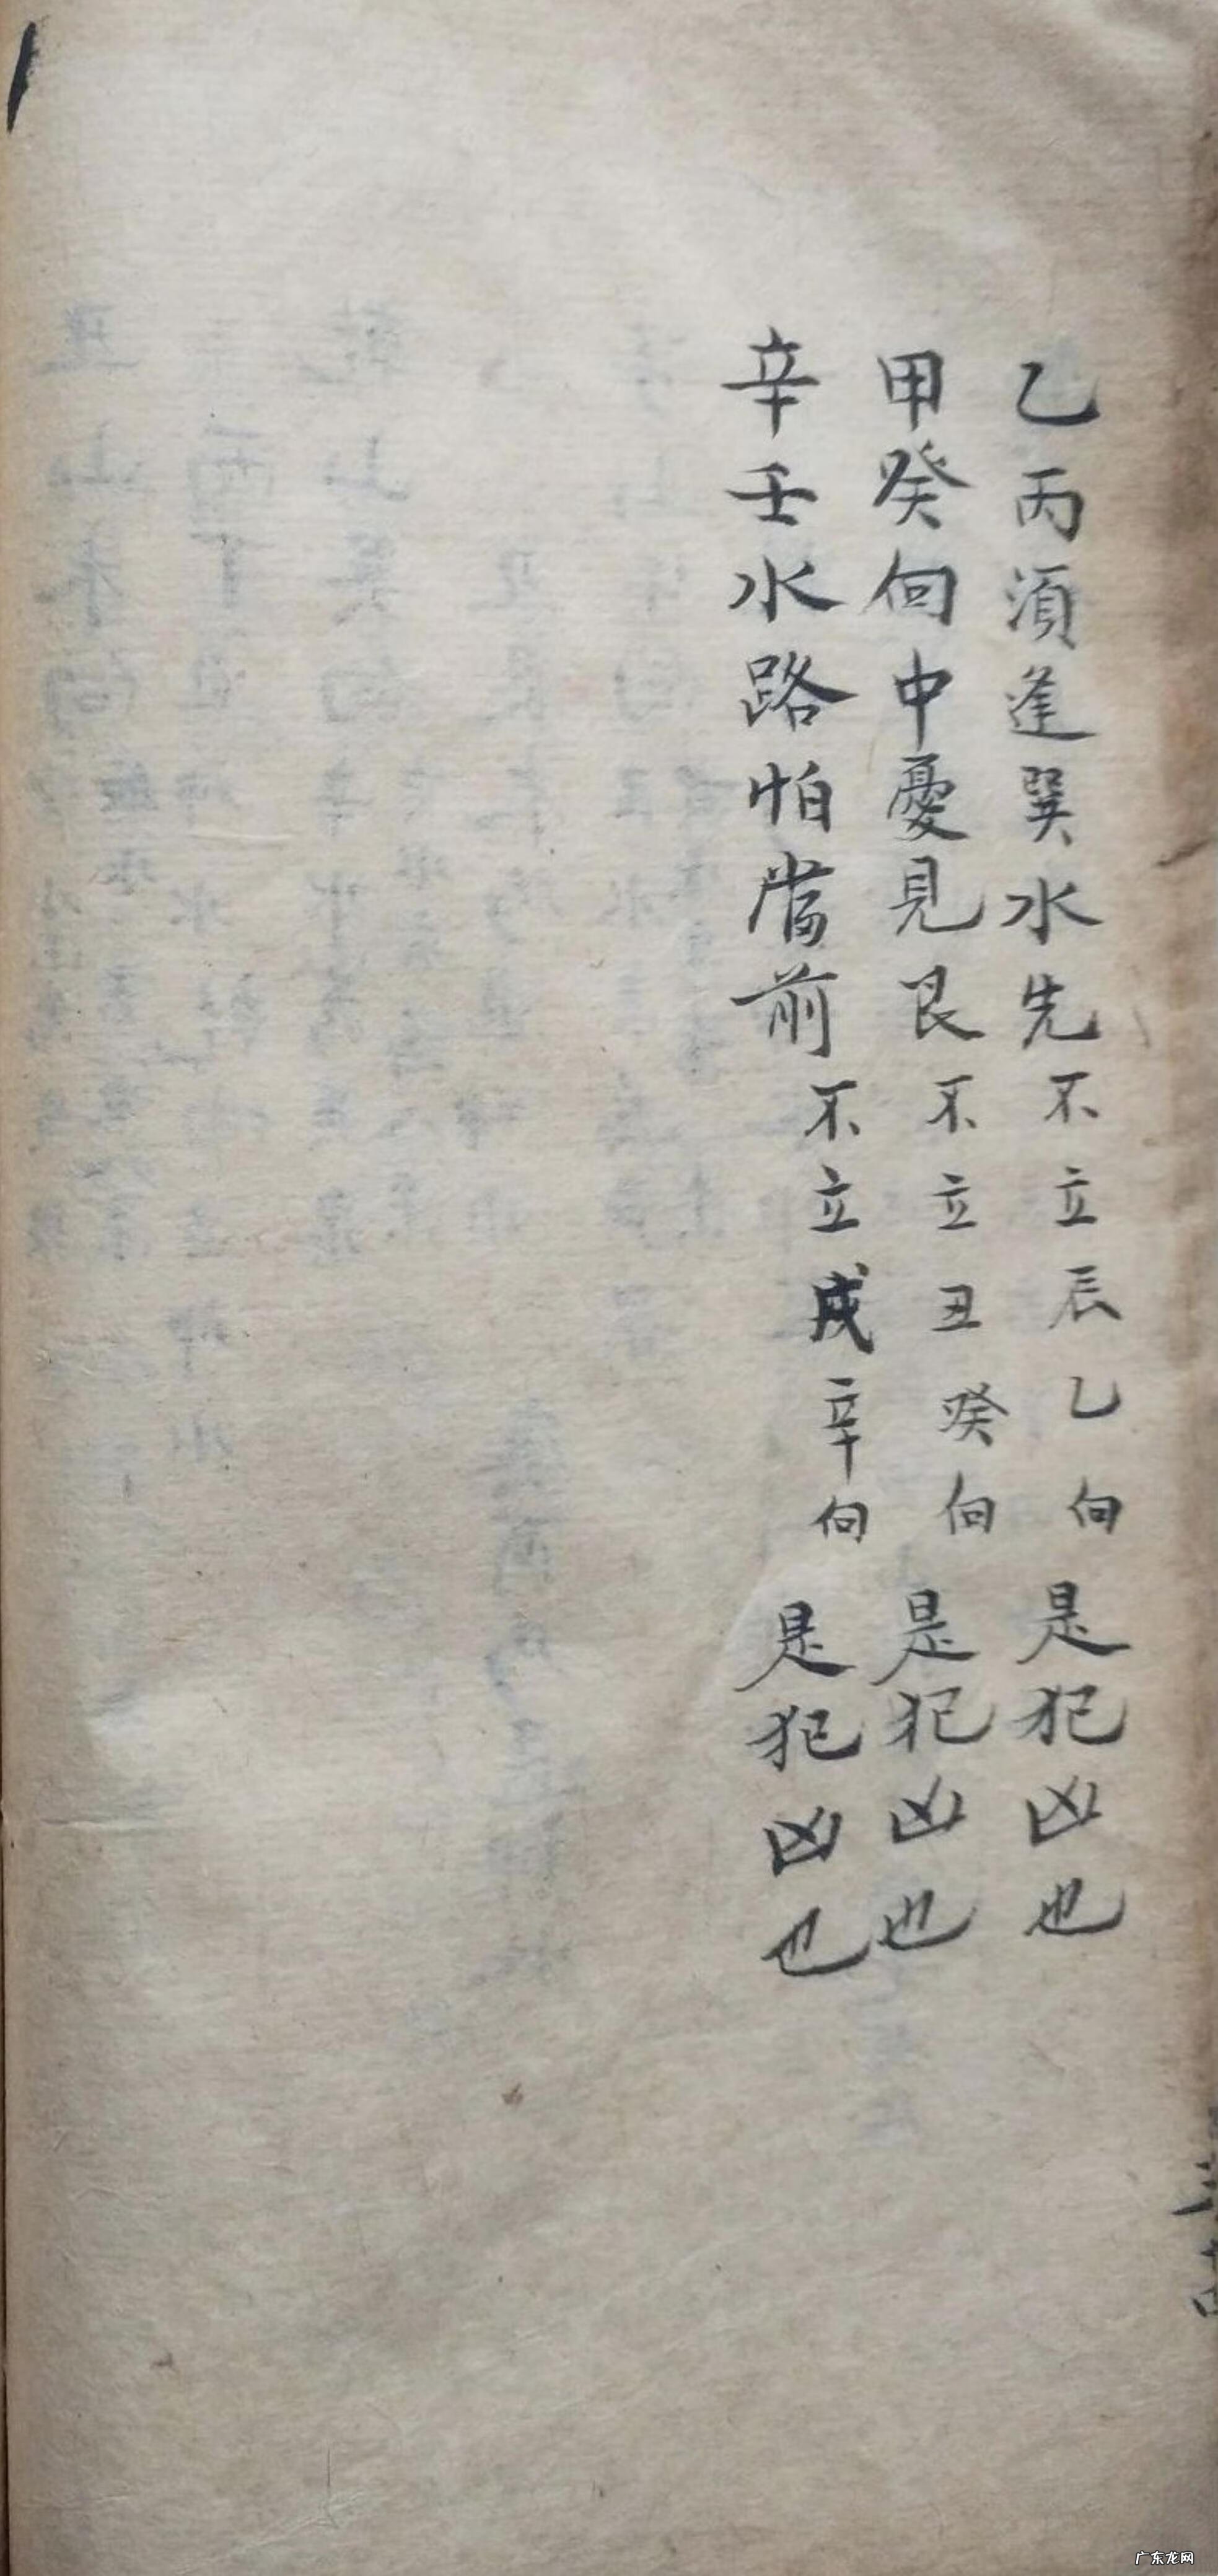 乙丙須逢巽水先不立辰乙向是犯凶也
甲癸向中憂見艮不立丑癸向是犯凶也
辛壬水路怕當前不立戌辛向是犯凶也
广东龙网